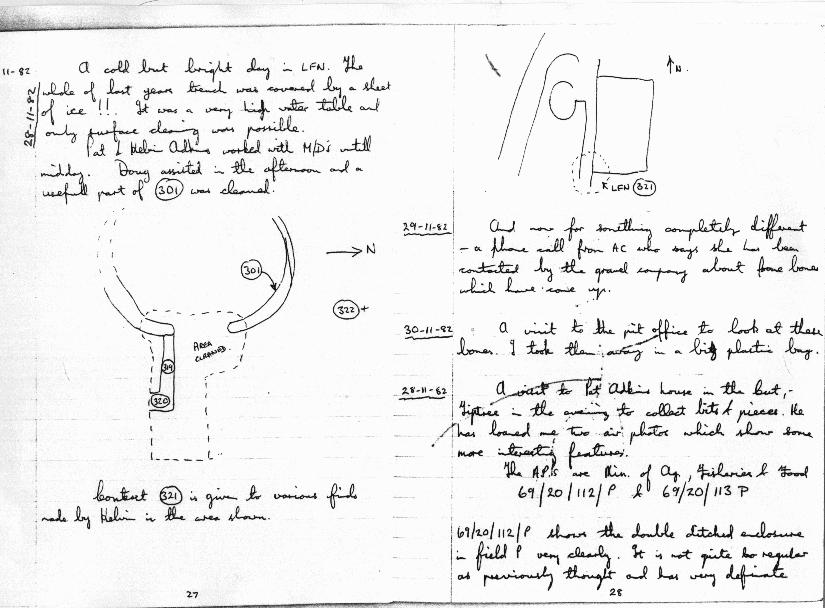 11-82
28-11-82
A cold but bright day in LFN. The
whole of last years trench was covered by a sheet
of ice !!. It was a very high water table and
only surface cleaning was possible.
Pat & Helvin Adkins worked with M/D's untill
midday. Doug assisted in the afternoon and a
usefull part of 301 was cleaned.
N
301
322 +
AREA
CLEANED
319
320
Context 321 is given to various finds
made by Helvin in the area shown.
27
N.
LFN 321
29-11-82
And now for something completely different
- a phone call from AC who says she has been
contacted by the gravel company about some bones
which have come up.
30-11-82
A visit to the pit office to look at these
bones. I took them away in a big plastic bag.
28-11-82
A visit to Pat Adkins house in the
Tiptree in the evening to collect bits & pieces. He
has loaned me two air photos which show some
more interesting features.
The A.P.s are Min. of Ag, Fisheries & Food
69/20/112/P & 69/20/113 P
69/20/112/P shows the double ditched enclosure
in field P very clearly. It is not quite so regular
as previously thought and has very definate
28